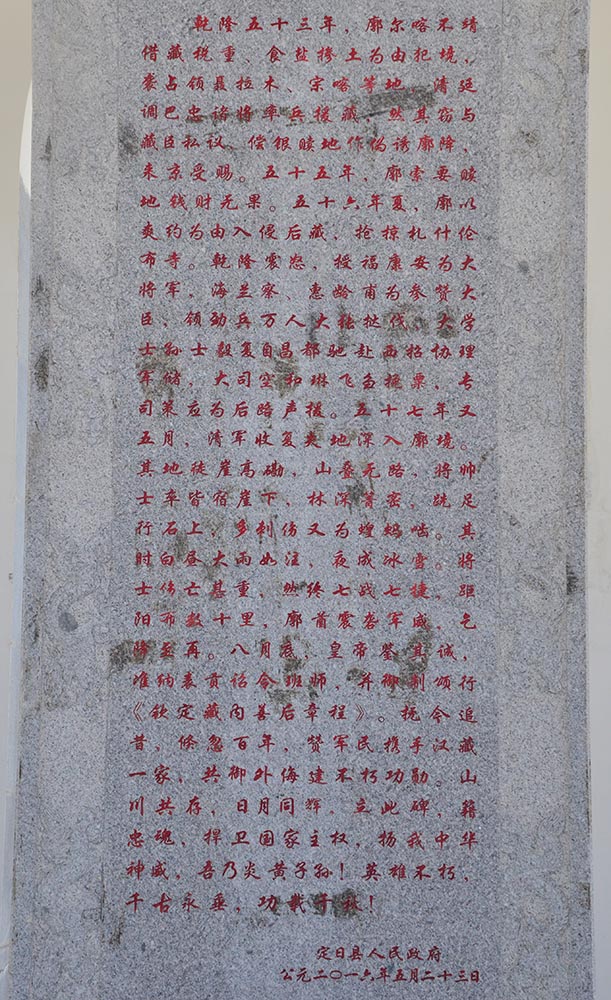 乾隆五十三年，廓尔喀不靖
借藏税重、食盐掺土为由犯境，
袭占领聂拉木、宗喀等地。清廷
调巴忠诣将率兵援藏，然其窃与
藏臣私议、偿银赎地作伪诱廓降，
来京受赐。五十五年，廓索要赎
地钱财无果。五十六年夏，廓以
爽约为由入侵后藏，抢掠札什伦
布寺。乾隆震怒，授福康安为大
将军，海兰察、惠龄甫为参赞大
臣，领劲兵万人大张挞伐。大学
士孙士毅复自昌都驰赴西招协理
军储，大司空和琳飞刍挽粟，专
司策应为后路声援。五十七年又
五月，清军收复失地深入廓境。
其地徒崖高磡，山叠无路，将帅
士卒皆宿崖下，林深箐密，跣足
行石上，多刺伤又为蝗蚂啮。其
时白昼大雨如注，夜成冰雪。将
士伤亡甚重，然终七战七捷，距
阳布数十里，廓首震詟军威，乞
降至再。八月底，皇帝鉴其诚，
准纳表贡诏令班师，并御制颁行
《钦定藏内善后章程》。抚今追
昔，倏忽百年，赞军民携手汉藏
一家，共御外侮建不朽功勋。山
川共存，日月同辉。立此碑，籍
忠魂，捍卫国家主权，扬我中华
神威，吾乃炎黄子孙！英雄不朽，
千古永垂，功载千秋！
定日县人民政府
公元二〇一六年五月二十三日